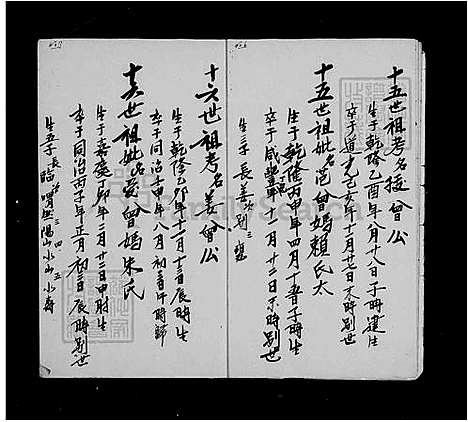 十五世祖考名援曾公
生于乾隆乙酉年八月廿八日子時建生
卒于道光己亥年十一月廿七日未時別世
十五世祖妣名范曾媽賴氏太
生于乾隆丙申年四月初五日子時生
卒于咸豐年十二月廿二日未時別世
生三子 長姜 次別 三
十六世祖考名姜曾公
生于乾隆乙卯年十一月十三日辰時生
卒于同治壬申年八月初三日午時歸
十六世祖妣名曾媽朱氏
生于嘉慶丁卯年二月廿三日申時生
卒于同治丙子年正月初三日辰時別世
生五子 長臨 次 三陽山 四水山 五水壽